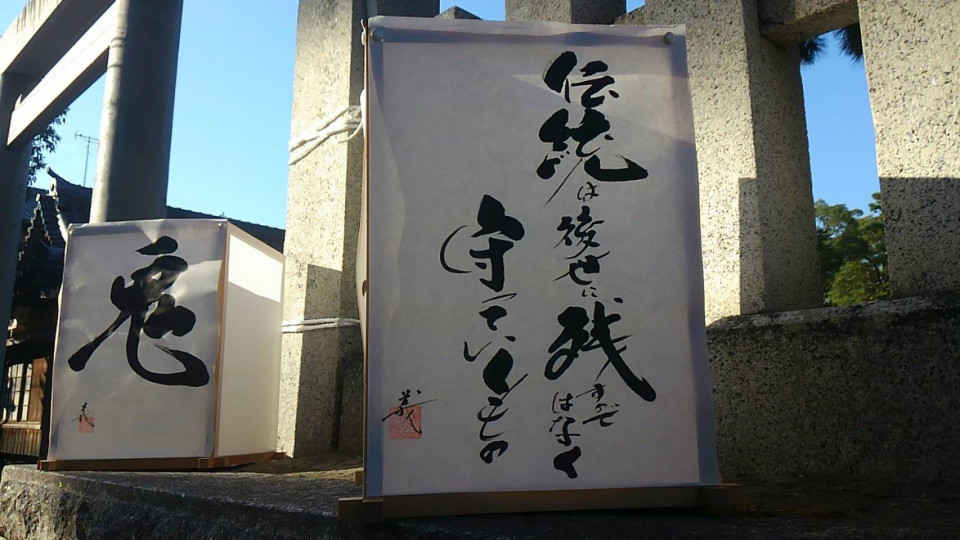 伝統は後世に残すのではなく
守っていくもの
義
義